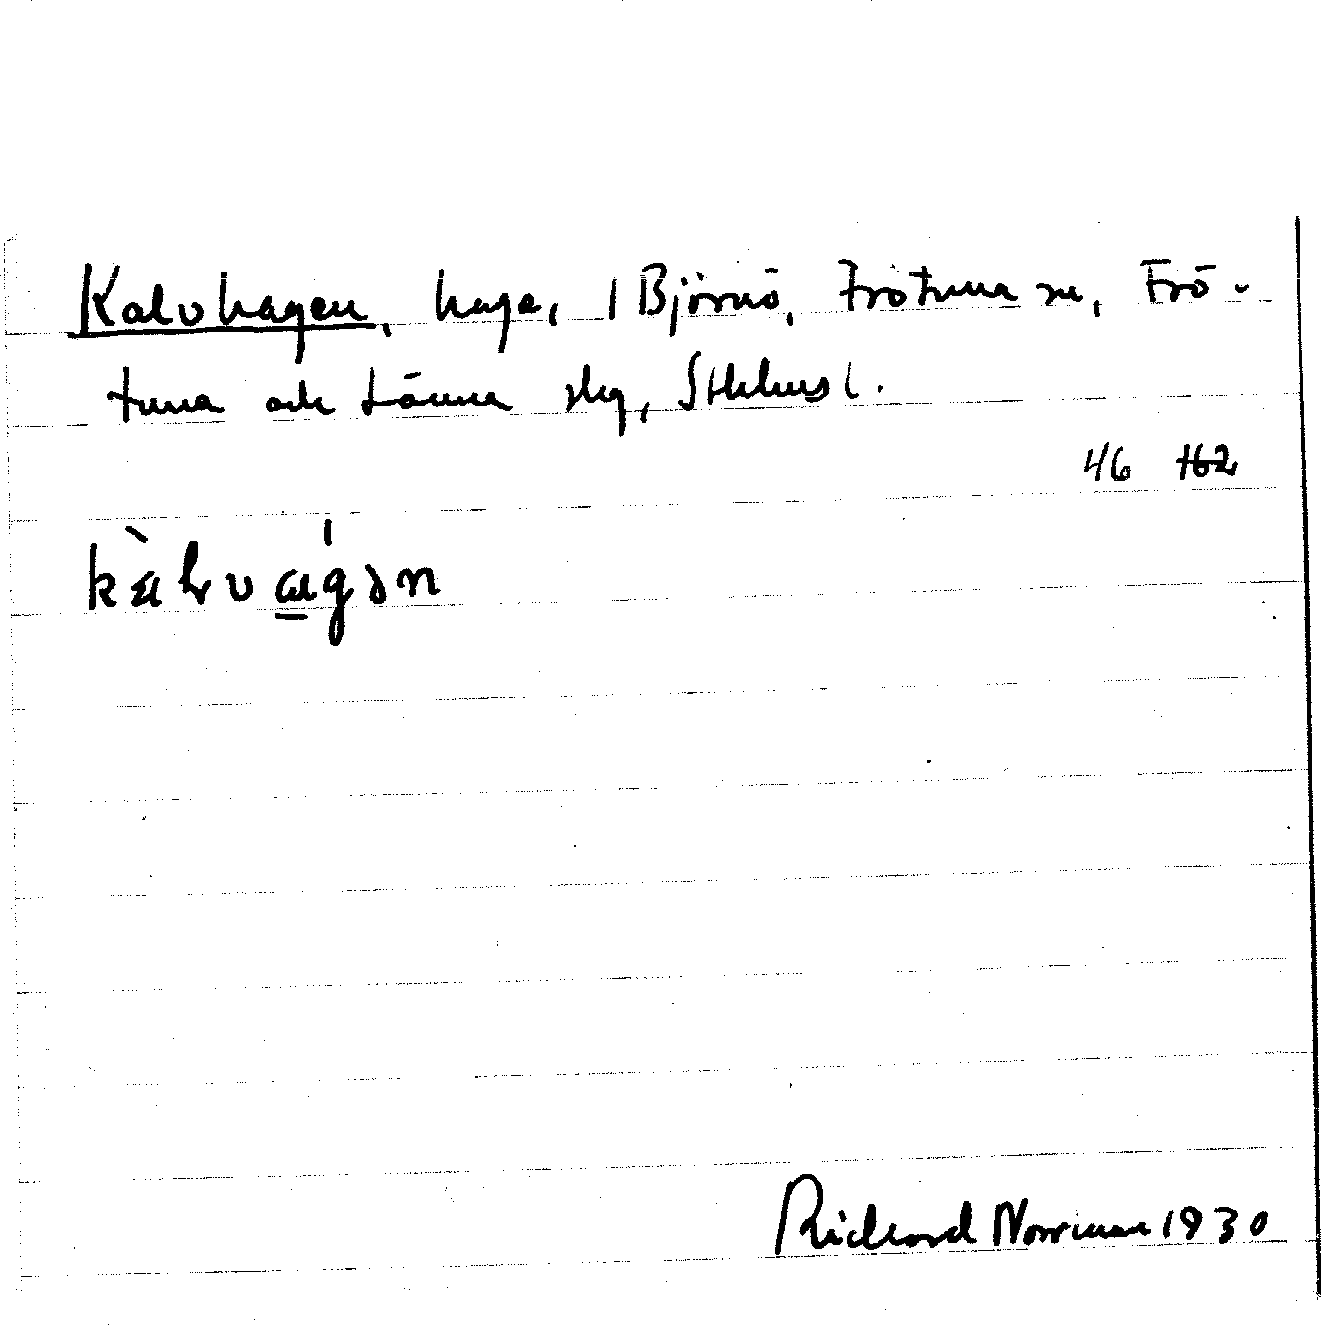 Kalvhagen, hage, 1 Björnö, Frötuna sn, Frö-
tuna och Länna skg, Sthlms l.
46 162
kàlvagən
Richard Norrman 1930